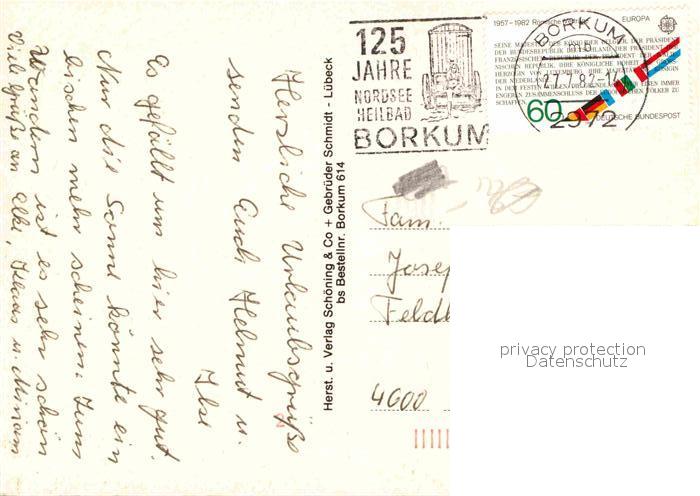 Herzliche Urlaubsgrüße
senden Euch Helmut u.
Ilse
Es gefällt uns hier sehr gut.
Nur die Sonne könnte ein
bischen mehr scheinen. Zum
Wandern ist es sehr schön
Viele Grüße an Elke, Klaus u. Miriam
Herst. u. Verlag Schöning & Co + Gebrüder Schmidt - Lübeck
bs Bestellnr. Borkum 614
125
JAHRE
NORDSEE
HEILBAD
BORKUM
1957-1982 Römische Verträge
EUROPA
SEINE MAJESTÄT DER KÖNIG DER BELGIER, DER PRÄSIDENT
DER BUNDESREPUBLIK DEUTSCHLAND, DER PRÄSIDENT DER
FRANZÖSISCHEN REPUBLIK, DER PRÄSIDENT DER ITALIE-
NISCHEN REPUBLIK, IHRE KÖNIGLICHE HOHEIT
HERZOGIN VON LUXEMBURG, IHRE MAJESTÄT
DER NIEDERLANDE
IN DEM FESTEN WILLEN, GRUNDLAGEN IMMER
ENGEREN ZUSAMMENSCHLUSS DER EUROPÄISCHEN VÖLKER ZU
SCHAFFEN
60
DEUTSCHE BUNDESPOST
BORKUM
2972
Fam.
Josep
Feldb
4600
privacy protection
Datenschutz